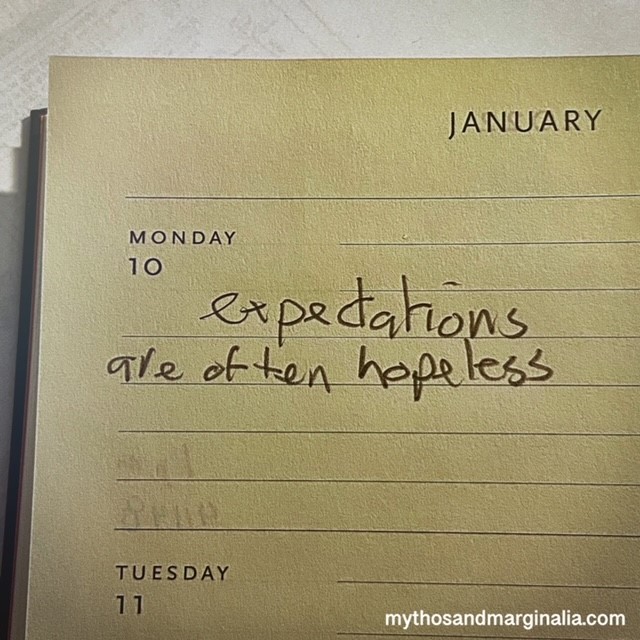 JANUARY
MONDAY
10
expectations
are often hopeless
TUESDAY
11
mythosandmarginalia.com